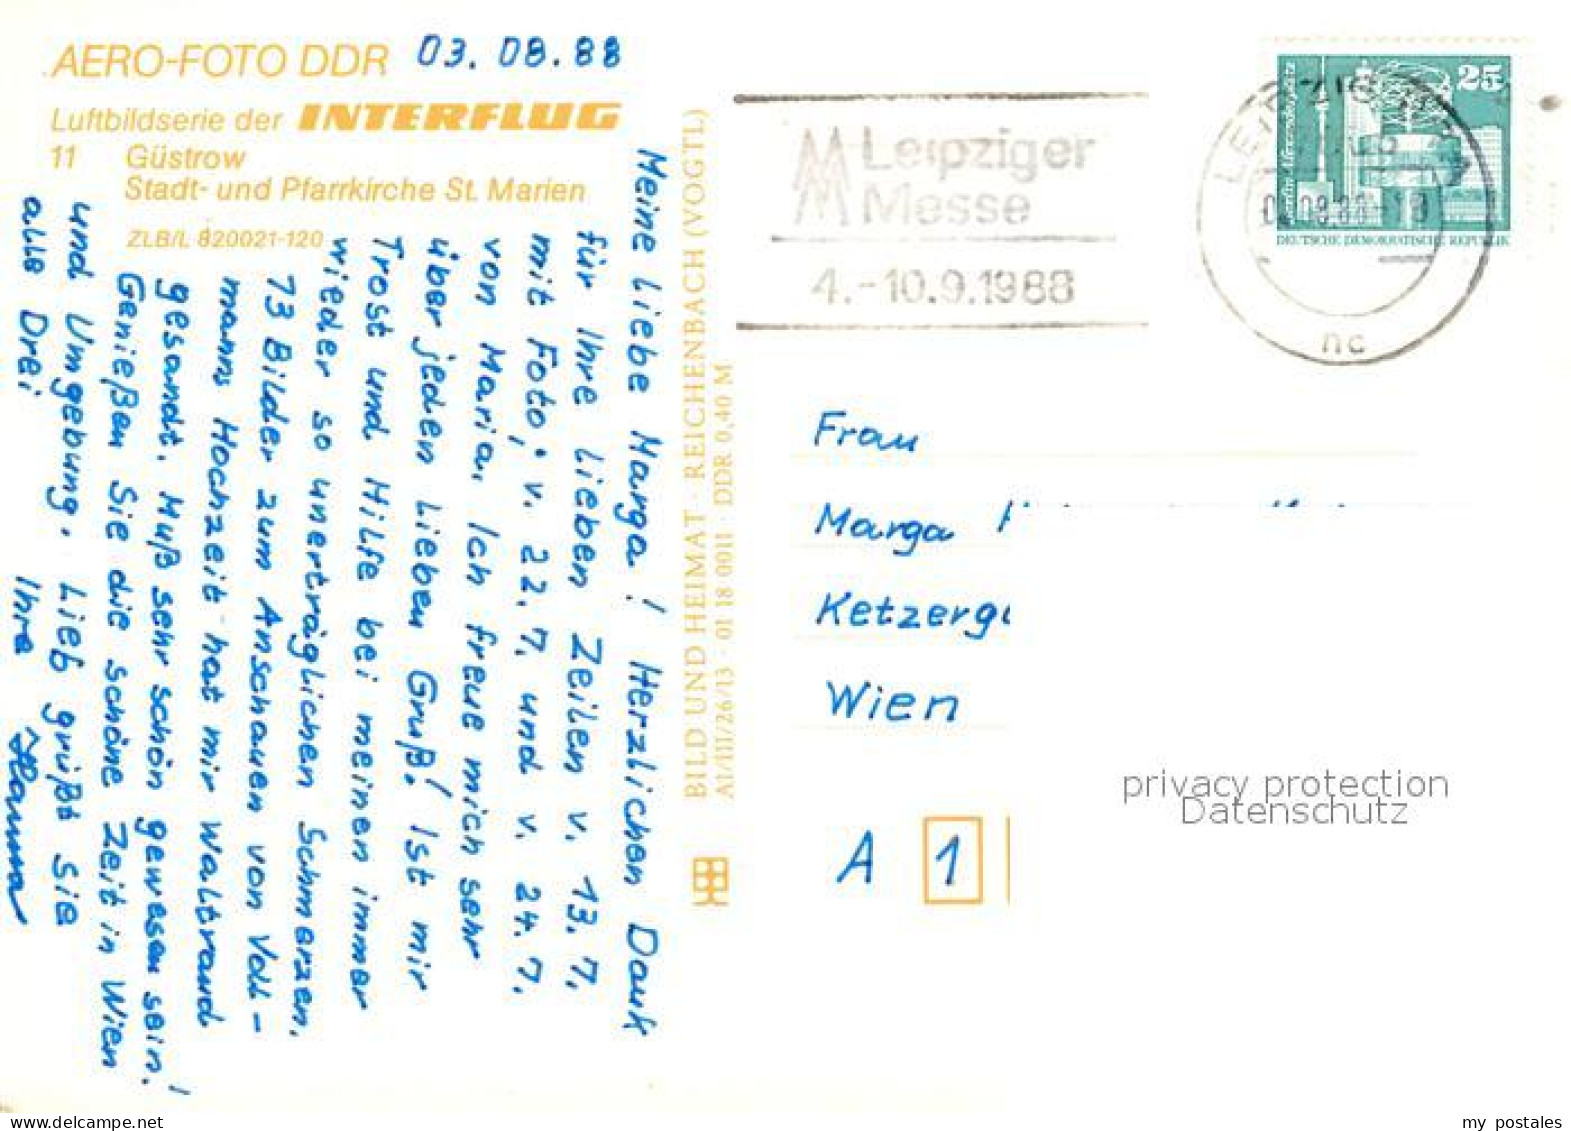 AERO-FOTO DDR
03.08.88
Luftbildserie der INTERFLUG
11 Güstrow
Stadt- und Pfarrkirche St. Marien
ZLB/L 820021-120
Meine liebe Marga! Herzlichen Dank
für Ihre lieben Zeilen v. 13.7,
mit Foto; v. 22.7, und v. 24.7,
von Maria. Ich freue mich sehr
über jeden lieben Gruß! Ist mir
Trost und Hilfe bei meinen immer
wieder so unerträglichen Schmerzen.
73 Bilder zum Anschauen von Voll-
manns Hochzeit hat mir Waltraud
gesandt. Muß sehr schön gewesen sein!
Genießen Sie die schöne Zeit in Wien
und Umgebung. Lieb grüßt Sie
alle Drei Ihre Hanna
BILD UND HEIMAT · REICHENBACH (VOGTL)
A1/III/26/13 · 01 18 0011 · DDR 0,40 M
Leipziger
Messe
4.-10.9.1988
LEIPZIG
nc
25
Berlin, Alexanderplatz
DEUTSCHE DEMOKRATISCHE REPUBLIK
Frau
Marga
Ketzerg
Wien
A 1
privacy protection
Datenschutz
my postales